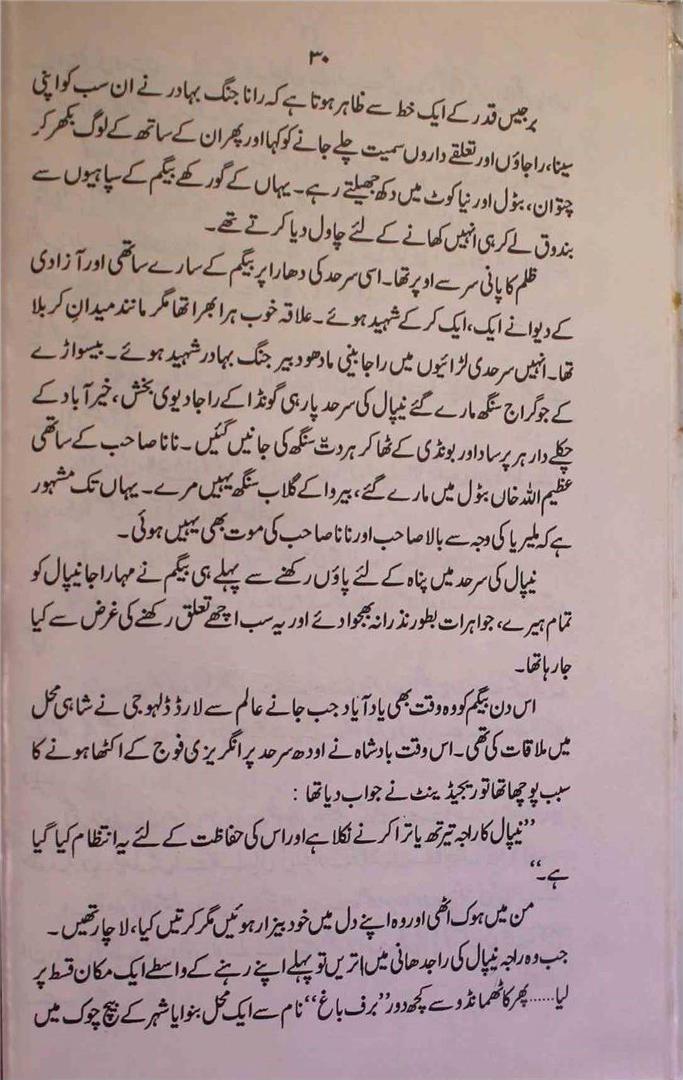 ۳۰
برجیس قدر کے ایک خط سے ظاہر ہوتا ہے کہ رانا جنگ بہادر نے ان سب کو اپنی
سینا، راجاؤں اور تعلقے داروں سمیت چلے جانے کو کہا اور پھر ان کے ساتھ کے لوگ بکھر کر
چتوان، بٹول اور نیا کوٹ میں دکھ جھیلتے رہے۔ یہاں کے گورکھے بیگم کے سپاہیوں سے
بندوق لے کر ہی انہیں کھانے کے لئے چاول دیا کرتے تھے۔
ظلم کا پانی سر سے اوپر تھا۔ اسی سرحد کی دھارا پر بیگم کے سارے ساتھی اور آزادی
کے دیوانے ایک، ایک کر کے شہید ہوئے۔ علاقہ خوب ہرا بھرا تھا مگر مانند میدانِ کربلا
تھا۔ انہیں سرحدی لڑائیوں میں راجا بینی مادھو دبیر جنگ بہادر شہید ہوئے۔ بیسواڑے
کے جوگراج سنگھ مارے گئے نیپال کی سرحد پار ہی گونڈا کے راجا دیوی بخش، خیرآباد کے
چکلے دار ہرپرساد اور بونڈی کے ٹھاکر ہردت سنگھ کی جانیں گئیں۔ نانا صاحب کے ساتھی
عظیم اللہ خاں بٹول میں مارے گئے، بیروا کے گلاب سنگھ یہیں مرے۔ یہاں تک مشہور
ہے کہ ملیریا کی وجہ سے بالا صاحب اور نانا صاحب کی موت بھی یہیں ہوئی۔
نیپال کی سرحد میں پناہ کے لئے پاؤں رکھنے سے پہلے ہی بیگم نے مہاراجا نیپال کو
تمام ہیرے، جواہرات بطور نذرانہ بھجوا دئے اور یہ سب اچھے تعلق رکھنے کی غرض سے کیا
جا رہا تھا۔
اس دن بیگم کو وہ وقت بھی یاد آیا دجب جانے عالم سے لارڈ ڈلہوجی نے شاہی محل
میں ملاقات کی تھی۔ اس وقت بادشاہ نے اودھ سرحد پر انگریزی فوج کے اکٹھا ہونے کا
سبب پوچھا تھا تو ریجیڈینٹ نے جواب دیا تھا :
”نیپال کا راجہ تیرتھ یاترا کرنے نکلا ہے اور اس کی حفاظت کے لئے یہ انتظام کیا گیا
ہے۔“
من میں ہوک اٹھی اور وہ اپنے دل میں خود بیزار ہوئیں مگر کرتیں کیا، لاچار تھیں۔
جب وہ راجہ نیپال کی راجدھانی میں اتریں تو پہلے اپنے رہنے کے واسطے ایک مکان قسط پر
لیا...... پھر کاٹھمانڈو سے کچھ دور ”برف باغ“ نام سے ایک محل بنوایا شہر کے بیچ چوک میں